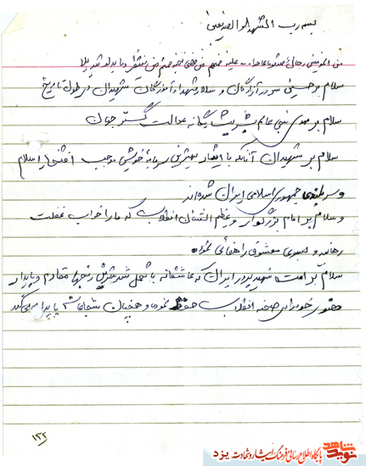 بسم رب الشهدا و الصدیقین
من المومنین رجال صدقوا ما عاهدوا الله علیه فمنهم من قضی نحبه و منهم من ینتظر و ما بدلوا تبدیلا
سلام بر حسین سرور آزادگان و سالار شهیدان و آموزگار شهیدان در طول تاریخ
سلام بر مهدی منجی عالم بشریت یگانه عدالت گستر جهان
سلام بر شهیدان آنانکه با ایثار بهترین سرمایه خویش موجب افتخار اسلام
و سربلندی جمهوری اسلامی ایران شده‌اند
و سلام بر امام بزرگوار و عظیم الشان انقلاب که ما را از خواب غفلت
رهانید و بسوی معشوق راهنمائی نموده
سلام بر امت شهیدپرور ایران که عاشقانه با تحمل شدیدترین رنجها مقاوم و پایدار
حضور خود را در صحنه انقلاب حفظ نموده و همچنان شجاعانه پایدار می
۱۳۲
نوید شاهد
پایگاه اطلاع رسانی فرهنگ ایثار و شهادت یزد